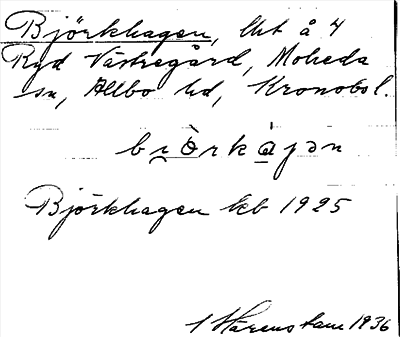 Björkhagen, lht å 4
Ryd Västregård, Moheda
sn, Allbo hd, Kronobs l.
biòrkájən
Björkhagen kb 1925
Härenstam 1936